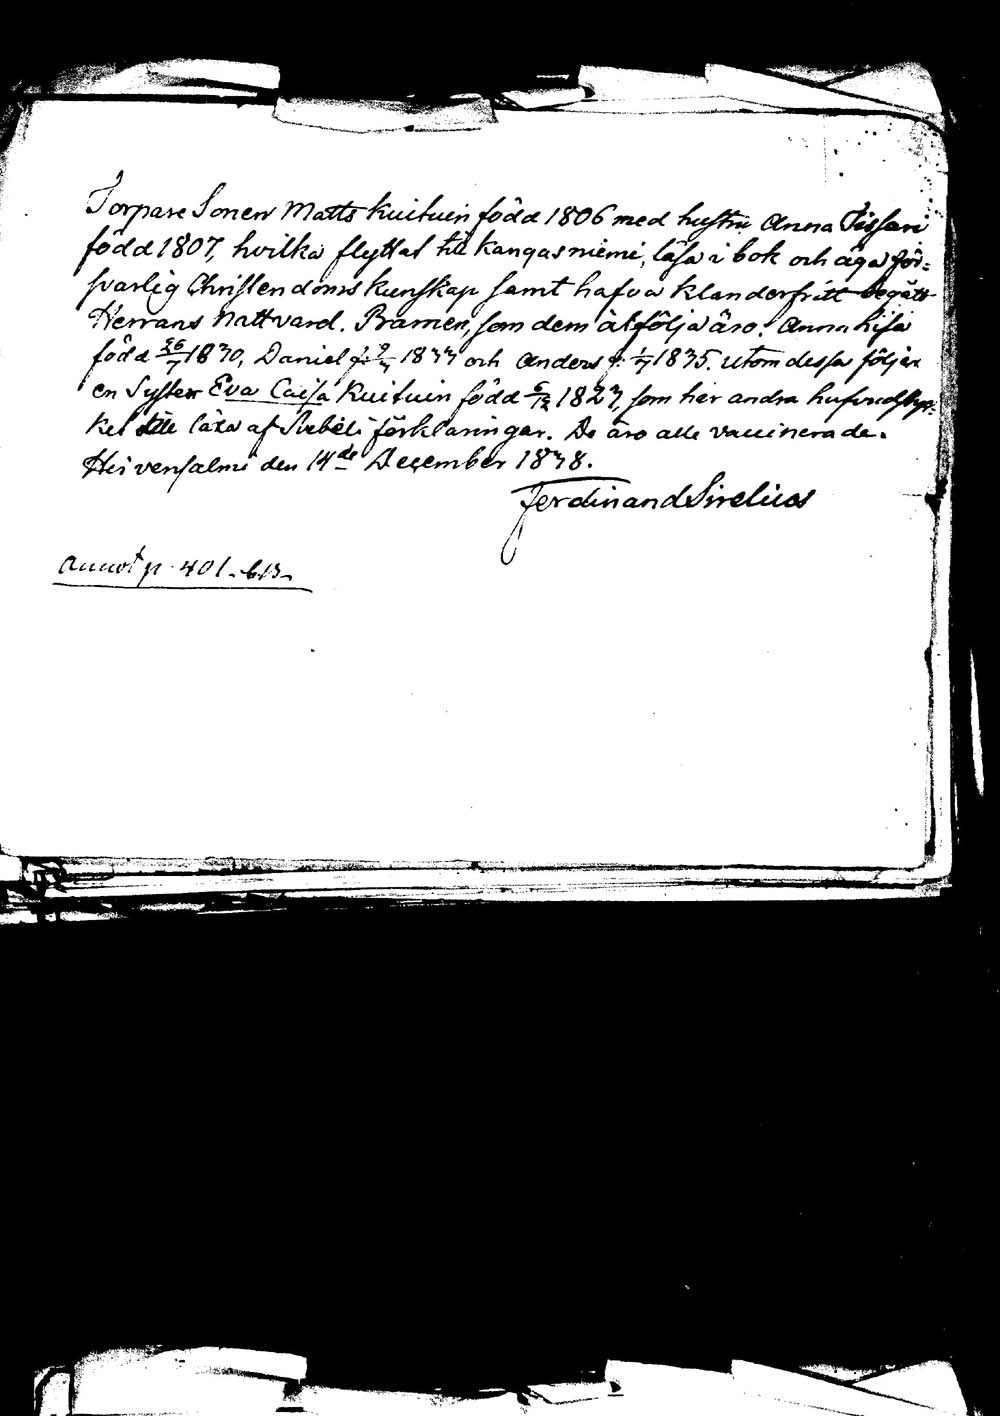 Torpare Sonen Matts Kuituin född 1806 med hustru Anna Tissari
född 1807, hvilka flyttat till Kangasniemi, läsa i bok och äga för-
svarlig Christendoms kunskap samt hafva klanderfritt begått
Herrans Nattvard. Barnen, som dem åtfölja äro: Anna Lisa
född 26/7 1830, Daniel f. 9/7 1833 och Anders f. 1/7 1835. Utom dessa följer
en Syster Eva Caisa Kuituin född 6/12 1823, som her andra hufvudstyc-
ket lära af Svebeli förklaringar. De äro alla vaccinerade.
Heivensalmi den 14de December 1838.
Ferdinand Sirelius
Annot p. 401. 613.